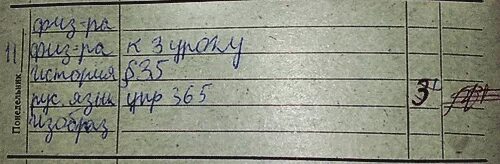 Понедельник
11
физ-ра
физ-ра к 3 уроку
история §35
рус. язык упр 365 3
изобраз